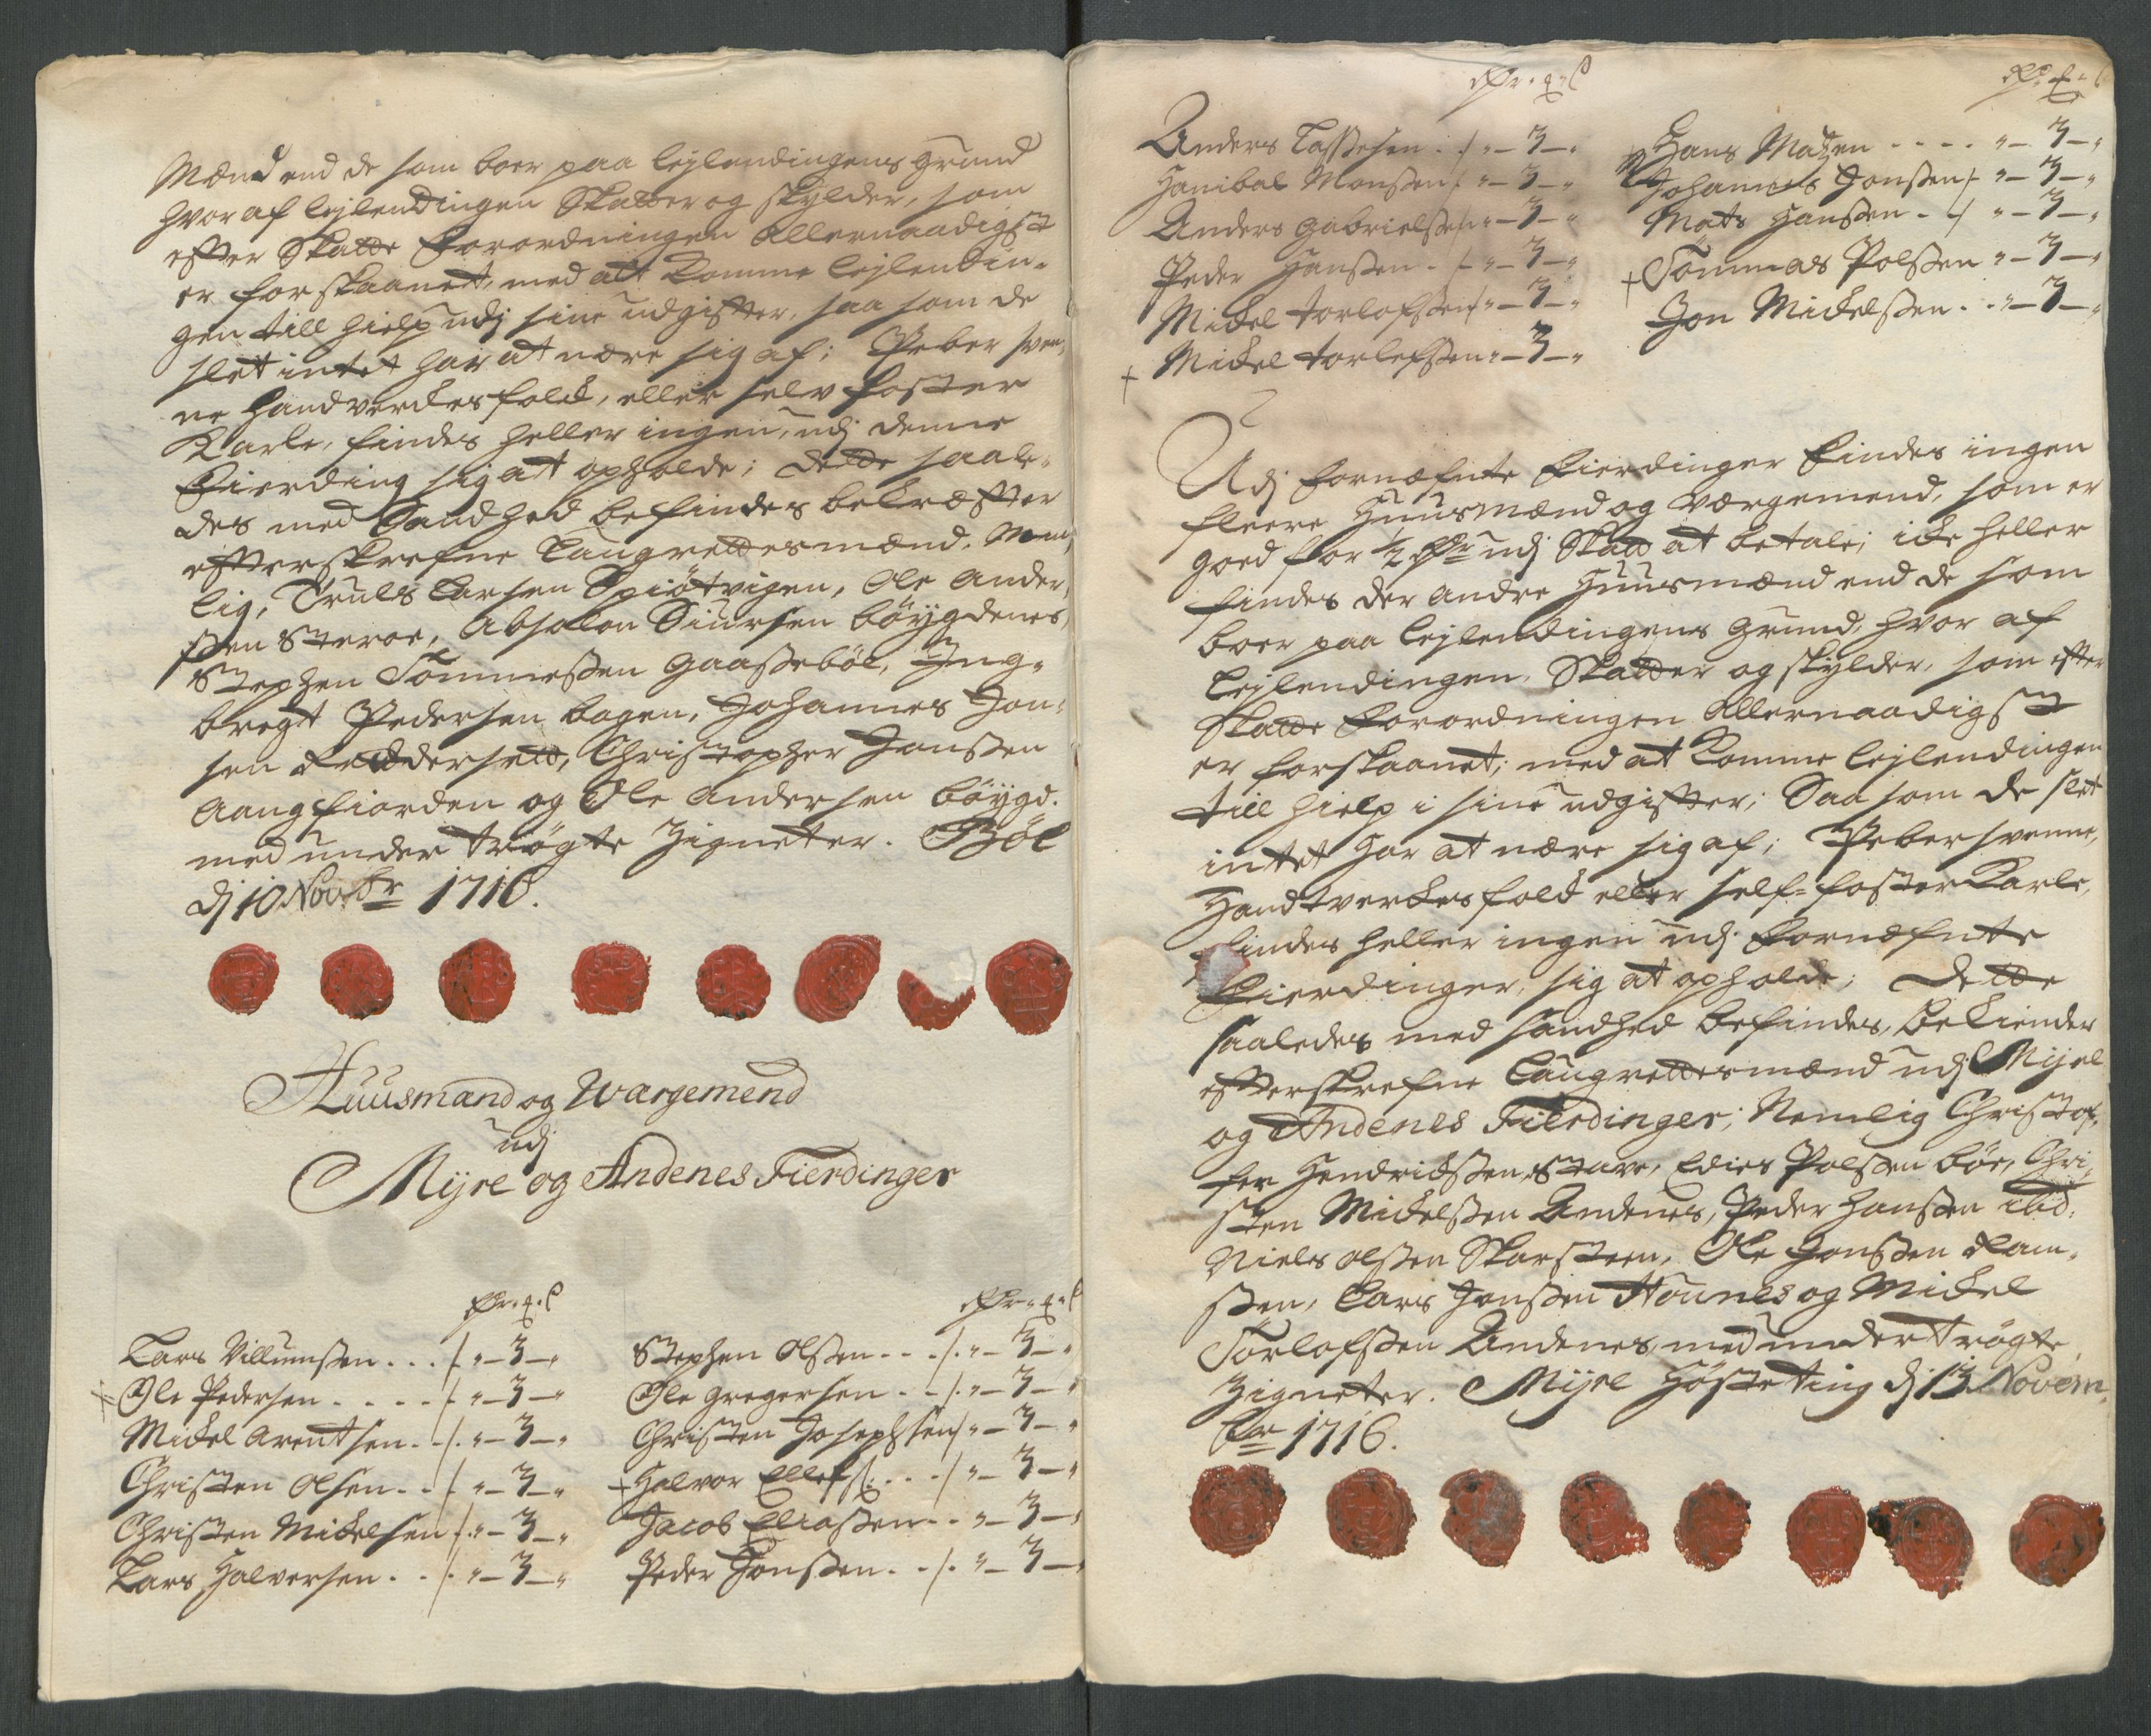 Mænd end de som boer paa lejlendingens grund
hvoraf lejlendingen Skatter og skylder, som
efter Skatte Forordningen Allernaadigst
er forskaanet, med att komme lejlendin-
gen till hielp udj sine udgifter, saa som de
slet intet har at nære sig af; Peber sven-
ne Handverckesfolck, eller selv foster
Karle, findes heller ingen, udj denne
Fierding sig at opholde; Dette saale-
des med Sandhed befindes bekræfter
efterskrefne Laugrettesmænd, Nem-
lig, Truls Larsen Spiøtvigen, Ole Ander-
ssen Steroe, Absolon Siursen böygdenes,
Stephen Tommessen Gaassebøl, Ing-
bregt Pedersen bogen, Johannes Jon-
sen Fridersett, Christopher Jonssen
Aangfiorden og Ole Andersen böygd.
med under trögte Zigneter. Böl
dj 10 Novbr 1716.
Huusmænd og Wærgemend
udj
Mijre og Andenes Fierdinger
Rdr. ꝗ. ß Rdr. ꝗ. ß
Lars Villumssen . . . /. „ – 3 – „ Stephen Olssen . . . /. „ – 3 – „
+ Ole Pedersen . . . . /. „ – 3 – „ Ole Gregersen . . /. „ – 3 – „
Mickel Arentsen . . /. „ – 3 – „ Christen Josephsen /. „ – 3 – „
Christen Olsen . . /. „ – 3 – „ + Halvor Ellefs: . . . /. „ – 3 – „
Christen Mickelsen /. „ – 3 – „ Jacob Eliassen . . „ – 3 – „
Lars Halversen . . /. „ – 3 – „ Peder Jonssen . . /. „ – 3 – „
Rdr. ꝗ. ß Rdr. ꝗ. ß
Anders Lassesen . . /. „ – 3 – „ Hans Matzen . . . . „ – 3 – „
Hanibal Monssen /. „ – 3 – „ Johannes Jonssen /. „ – 3 – „
Anders Gabrielssen /. „ – 3 – „ Mats Hanssen . . /. „ – 3 – „
Peder Hanssen . . /. „ – 3 – „ + Tommas Polssen „ – 3 – „
Mickel Torlofssen /. „ – 3 – „ Jon Mickelssen . . „ – 3 – „
+ Mickel Torlefssen „ – 3 – „
Udj Fornæfnte Fierdinger Findes ingen
fleere Huusmænd og Værgemend, som er
goed for ½ Rdr udj Skatt at betale; icke heller
findes der andre Huusmænd end de som
boer paa lejlendingens grund, hvor af
lejlendingen, Skatter og skylder, som efter
Skatte Forordningen Allernaadigst
er forskaanet; med at komme lejlendingen
till hielp i sine udgifter; Saa som de slet
intet har at nære sig af; Pebersvenne,
Handtverckesfolck eller self-foster Karle,
findes heller ingen udj Fornæfnte
Fierdinger, sig at opholde; Dette
saaledes med sandhed befindes, bekiender
efterskrefne Laugrettesmænd udj Mijre
og Andenes Fierdinger; Nemlig Christof-
fer Hendrichssen Stave, Edies Polssen böe, Chri-
sten Mickelssen Andenes, Peder Hanssen ibid:
Niels Olssen Skarsteen, Ole Jonssen Ram-
ssen, Lars Jonssen Hounes og Mickel
Torlofssen Andenes, med under trögte
Zigneter. Mijre Høsteting dj 13 Novem-
br 1716.